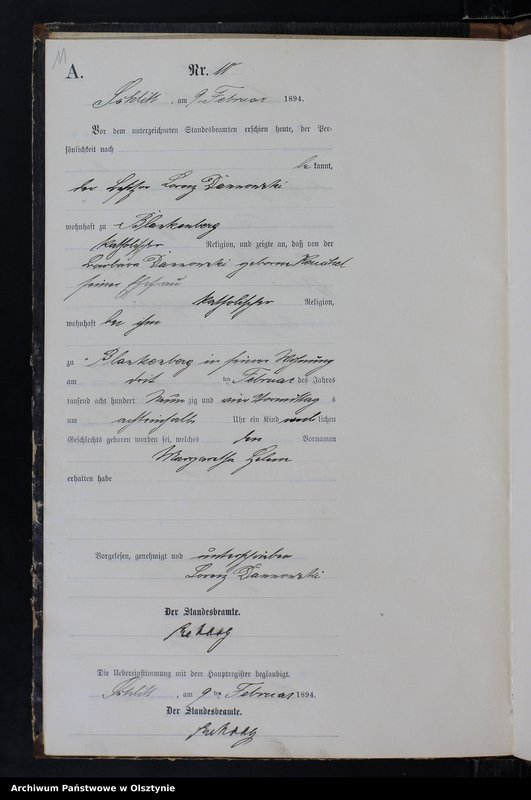 11
A.
Nr. 10
am 9 Februar 1894.
Vor dem unterzeichneten Standesbeamten erschien heute, der Per-
sönlichkeit nach
be kannt,
der Besitzer Lorenz
wohnhaft zu Blankenberg
katholischer Religion, und zeigte an, daß von der
Barbara geborene
seiner Ehefrau
katholischer Religion,
wohnhaft bei ihm
zu Blankenberg in seiner Wohnung
am ten Februar des Jahres
tausend acht hundert neun zig und vier Vormittag s
um achteinhalb Uhr ein Kind weib lichen
Geschlechts geboren worden sei, welches den Vornamen
Margaretha
erhalten habe
Vorgelesen, genehmigt und unterschrieben
Lorenz
Der Standesbeamte.
Die Uebereinstimmung mit dem Hauptregister beglaubigt.
am 9 ten Februar 1894.
Der Standesbeamte.
Archiwum Państwowe w Olsztynie